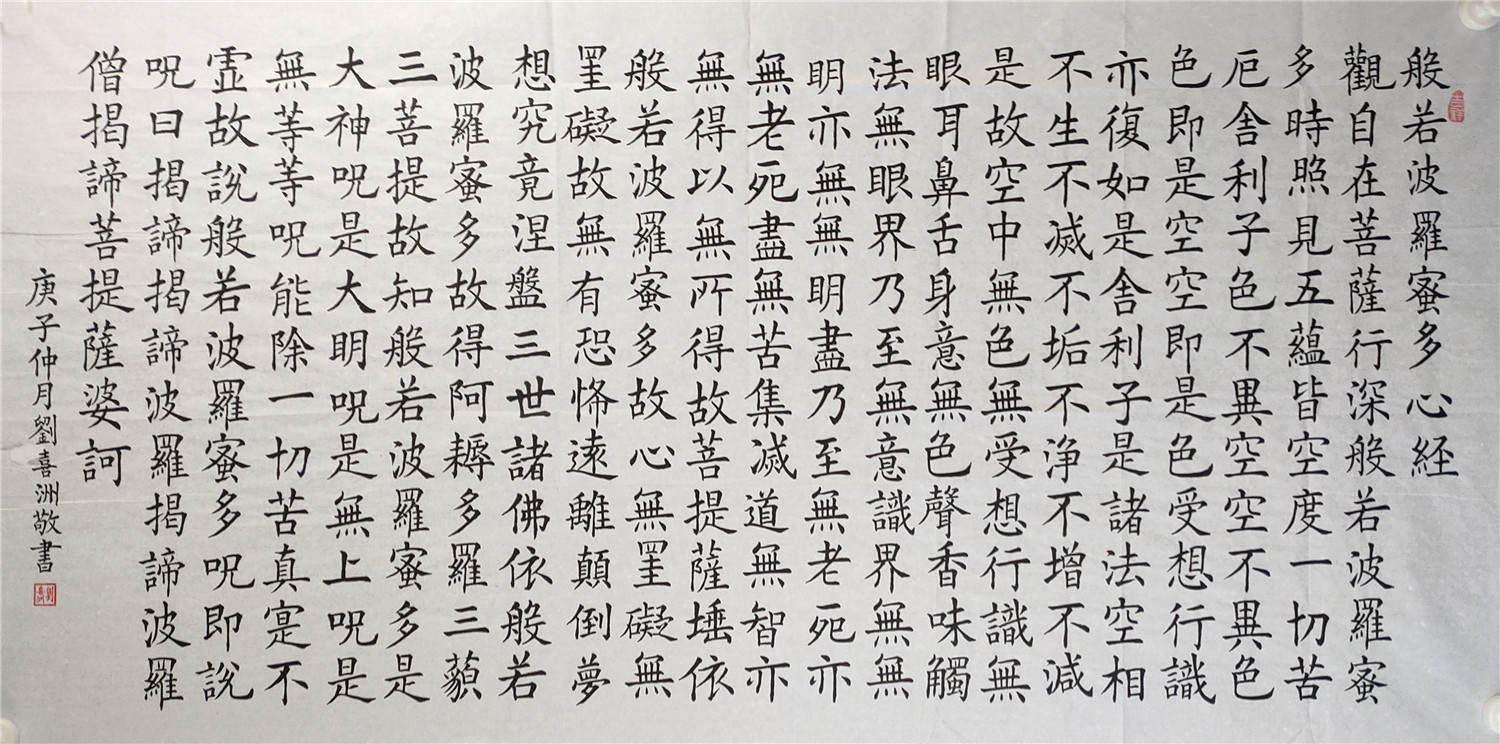 般若波羅蜜多心経
觀自在菩薩行深般若波羅蜜
多時照見五蘊皆空度一切苦
厄舎利子色不異空空不異色
色即是空空即是色受想行識
亦復如是舎利子是諸法空相
不生不滅不垢不浄不增不減
是故空中無色無受想行識無
眼耳鼻舌身意無色聲香味觸
法無眼界乃至無意識界無無
明亦無無明盡乃至無老死亦
無老死盡無苦集滅道無智亦
無得以無所得故菩提薩埵依
般若波羅蜜多故心無罣礙無
罣礙故無有恐怖遠離顛倒夢
想究竟涅盤三世諸佛依般若
波羅蜜多故得阿耨多羅三藐
三菩提故知般若波羅蜜多是
大神呪是大明呪是無上呪是
無等等呪能除一切苦真寔不
虛故說般若波羅蜜多呪即說
呪曰揭諦揭諦波羅揭諦波羅
僧揭諦菩提薩婆訶
庚子仲月劉喜洲敬書